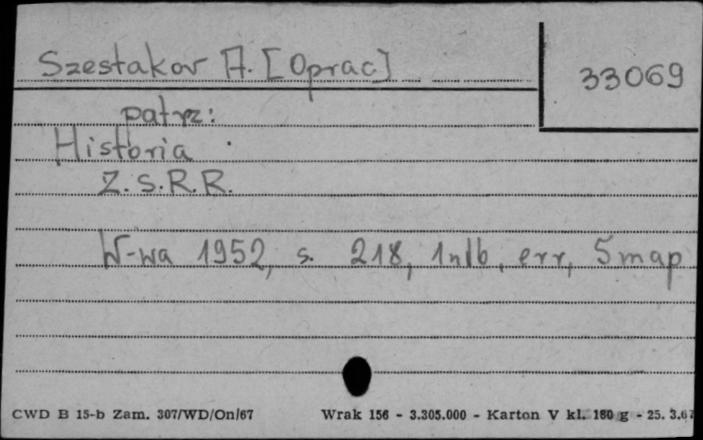 Szestakov A. [Oprac]
33069
patrz:
Historia
Z.S.R.R.
W-wa 1952, s. 218, 1nlb, err, 5map
CWD B 15-b Zam. 307/WD/On/67 Wrak 156 - 3.305.000 - Karton V kl. 180 g - 25. 3.67